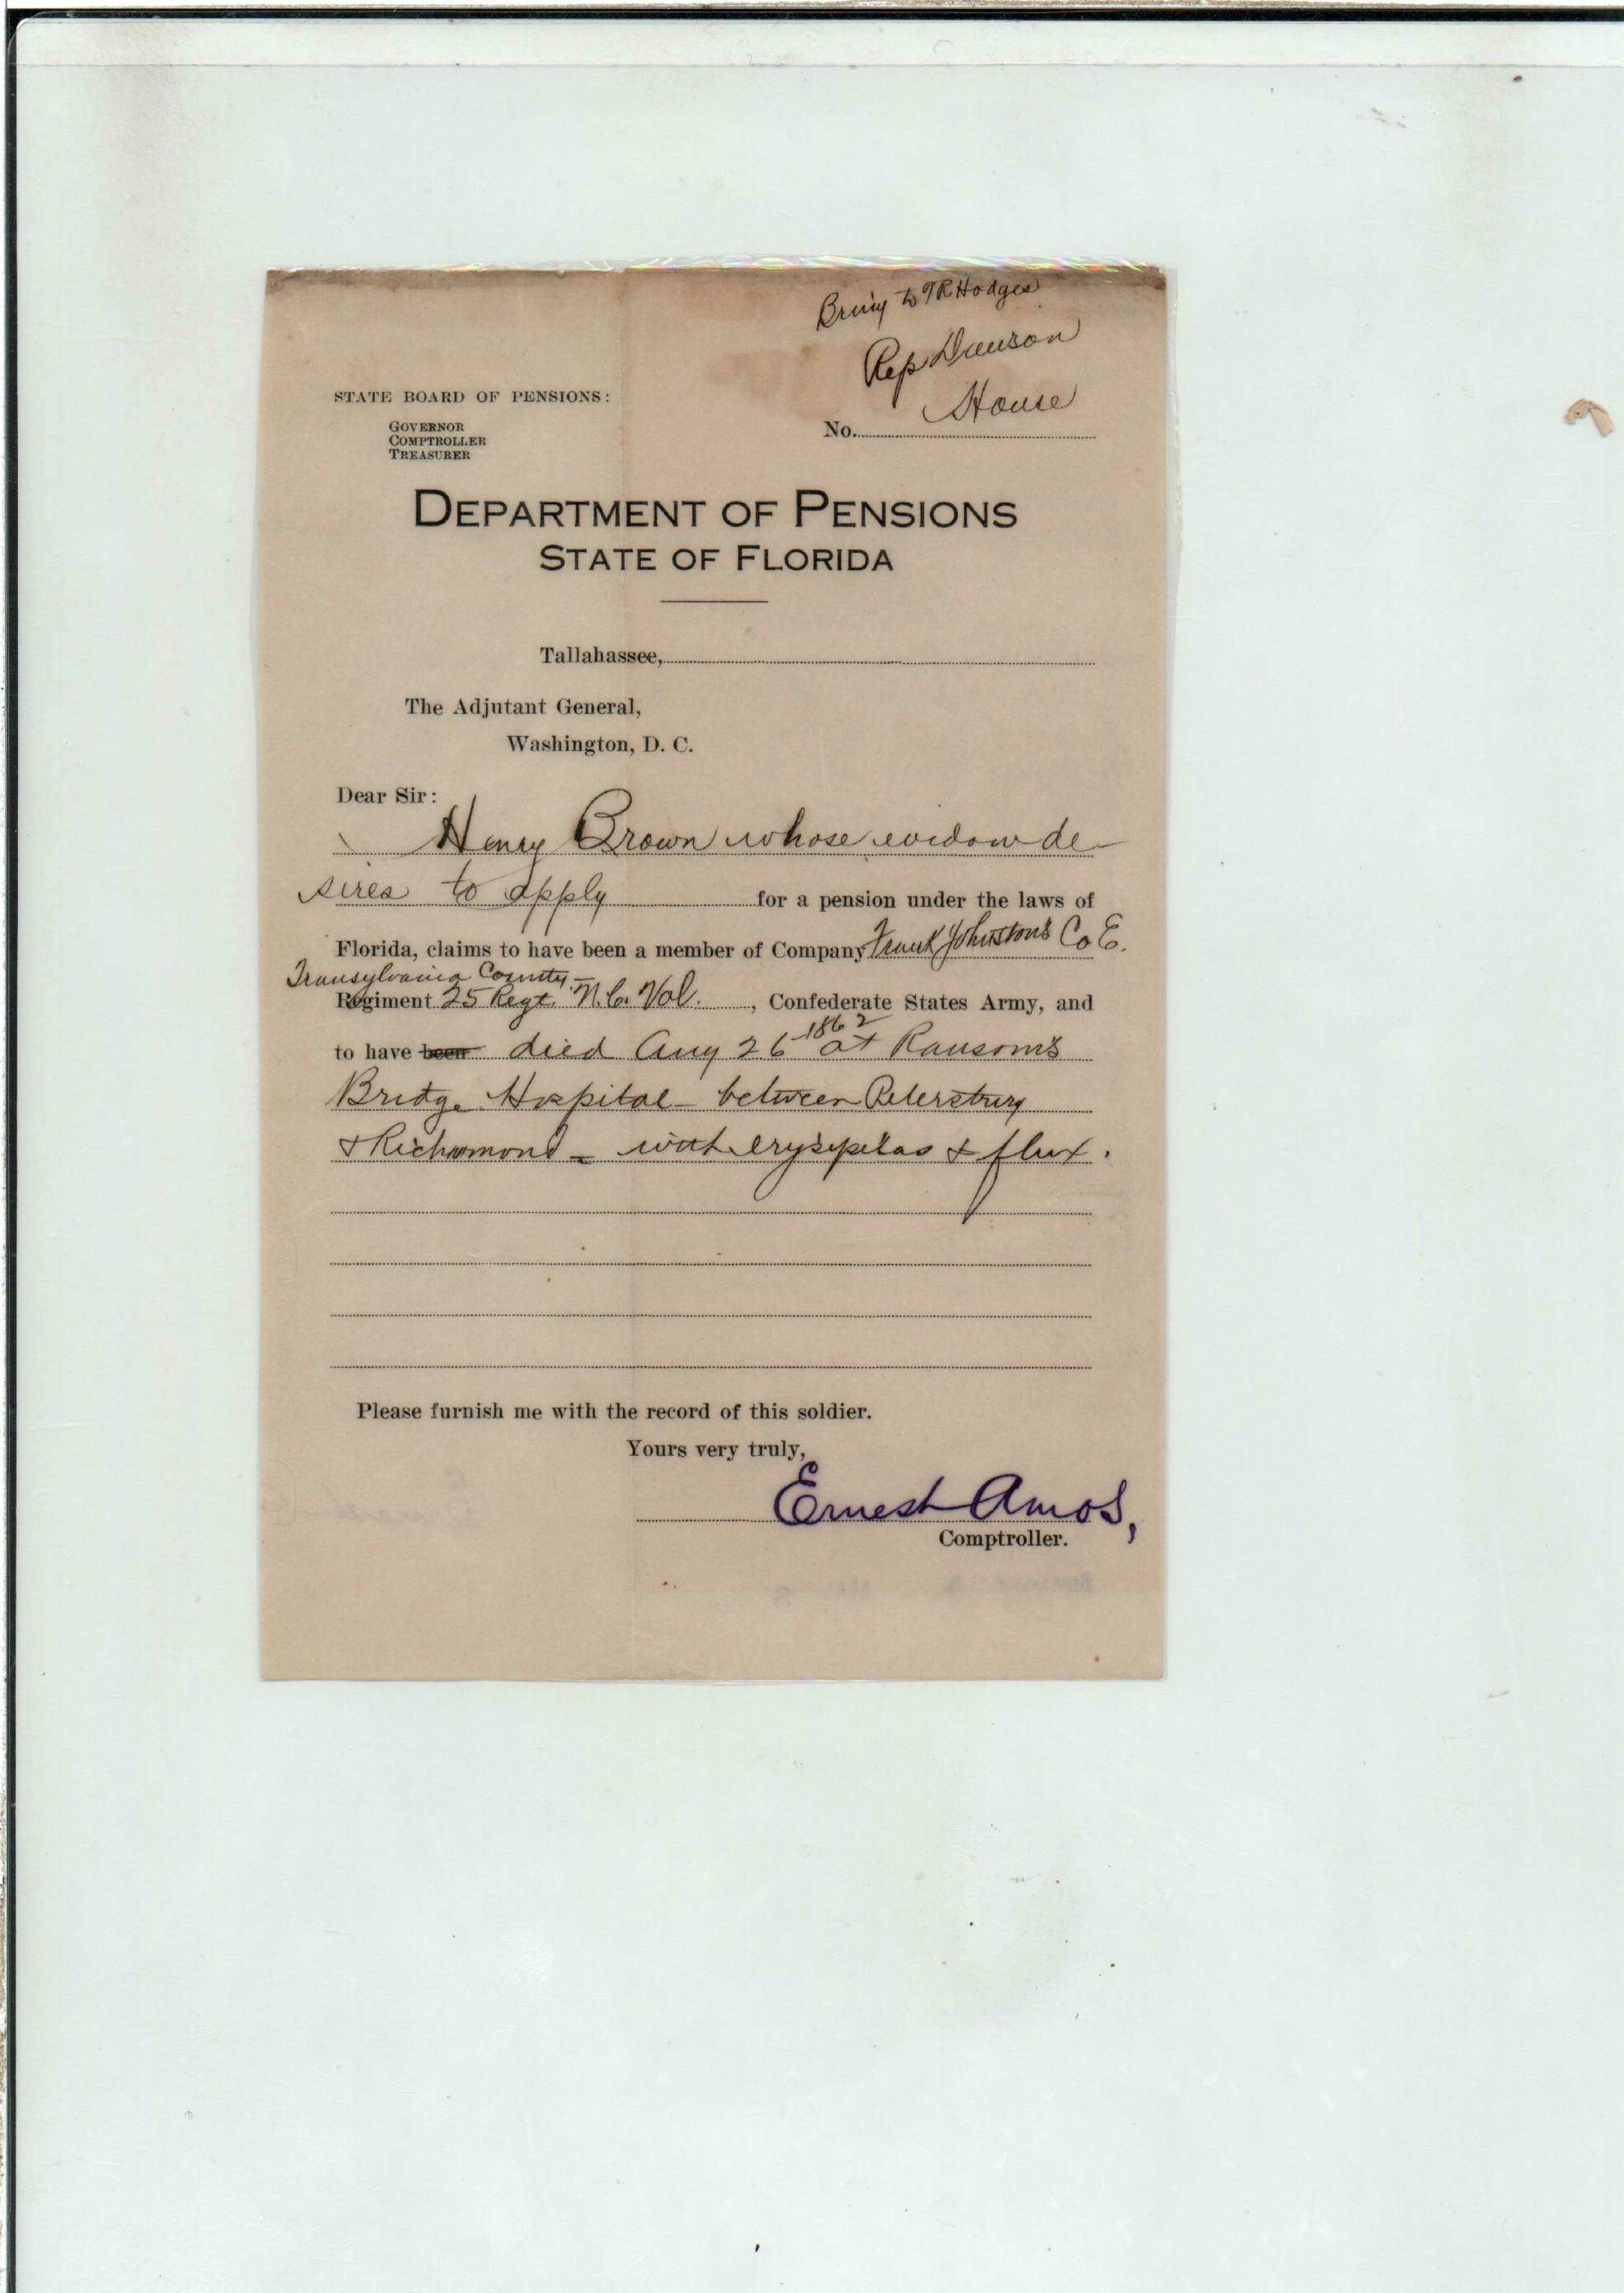 Bring to TR Hodges
Rep
House
STATE BOARD OF PENSIONS:
GOVERNOR
COMPTROLLER
TREASURER
No.
DEPARTMENT OF PENSIONS
STATE OF FLORIDA
Tallahassee,
The Adjutant General,
Washington, D. C.
Dear Sir:
Henry Brown whose widow de-
sires to apply for a pension under the laws of
Florida, claims to have been a member of Company Frank Johnston's Co E.
Transylvania County-
Regiment 25 Regt. N.C. Vol. , Confederate States Army, and
1862
to have been died Aug 26 at Ransom's
Bridge Hospital - between Petersburg
& Richmond - with erysipelas & flux.
Please furnish me with the record of this soldier.
Yours very truly,
Ernest Amos,
Comptroller.